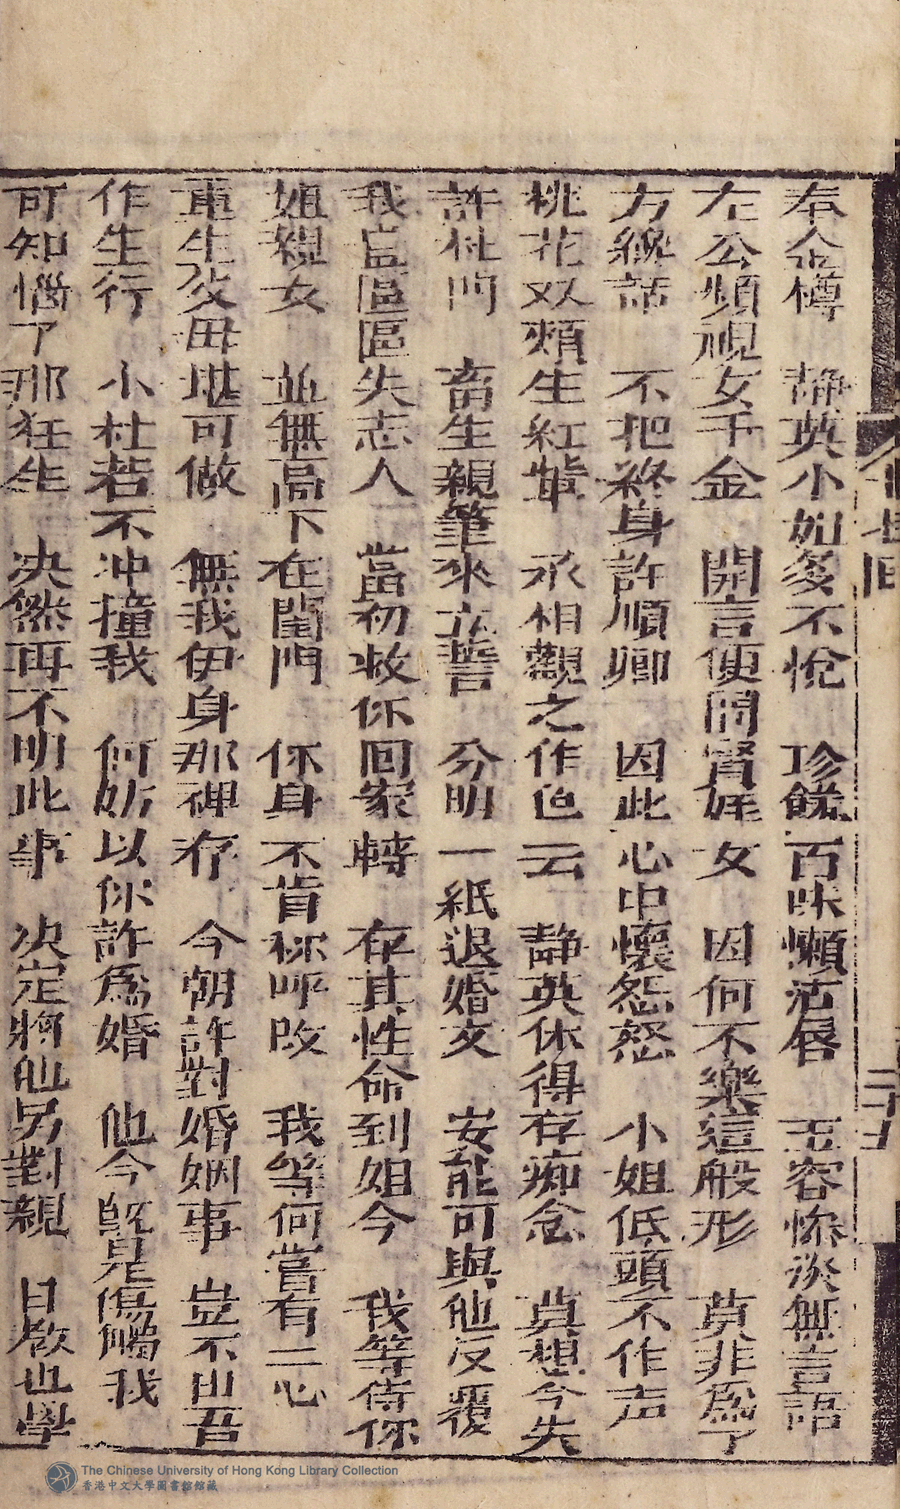 奉金樽 静英小如多不悅 珍饈百味懶沾唇 玉容惨淡無言語
左公頻視女千金 開言便問賢姪女 因何不樂這般形 莫非爲了
方纔話 不把終身許順卿 因此心中懷怨怒 小姐低頭不作声
桃花双頰生紅暈 承相觀之作色云 静英休得存痴念 莫想今失
許杜門 畜生親筆來立誓 分明一紙退婚文 安能可與他反覆
我豈區區失志人 當初收你回家轉 存其性命到姐今 我等待你
姐親女 並無高下在閨門 你身不肯称呼改 我等何嘗有二心
重生父母堪可做 無我伊身那裡存 今朝許對婚姻事 豈不由吾
作生行 小杜若不冲撞我 何妨以你許爲婚 他今既是傷觸我
可知惱了那狂生 决然再不明此事 决定將他另對親 日啟也學
二十五
The Chinese University of Hong Kong Library Collection
香港中文大學圖書館館藏